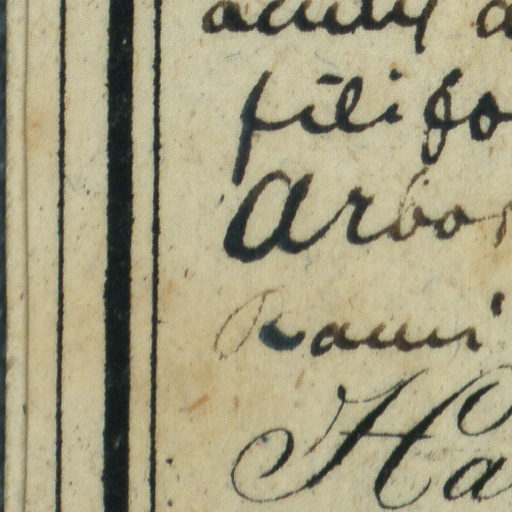 filifo
Arbor
Rami
Ha